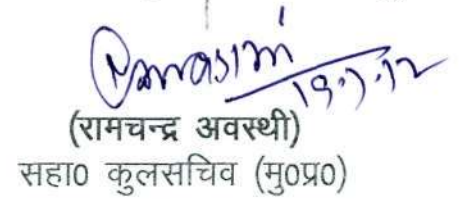 19.7.12
(रामचन्द्र अवस्थी)
सहा0 कुलसचिव (मु0प्र0)